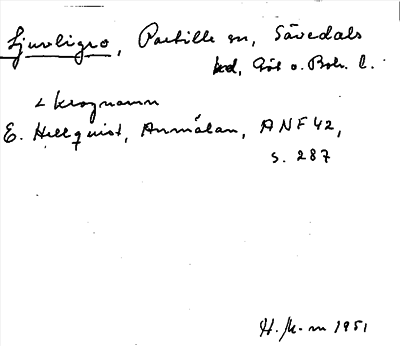 Ljuvligro, Partille sn, Sävedals
hd, Göt o. Boh. l.
< krognamn
E. Hellquist, Anmälan, ANF 42,
s. 287
H. K-m 1951